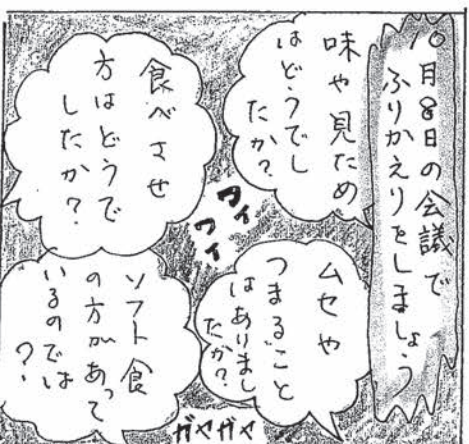 10月8日の会議で
ふりかえりをしましょう
味や見ため
はどうでし
たか？
食べさせ
方はどうで
したか？
ワイ
ワイ
ムセや
つまること
はありまし
たか？
ソフト食
の方があって
いるのでは
？
ガヤガヤ